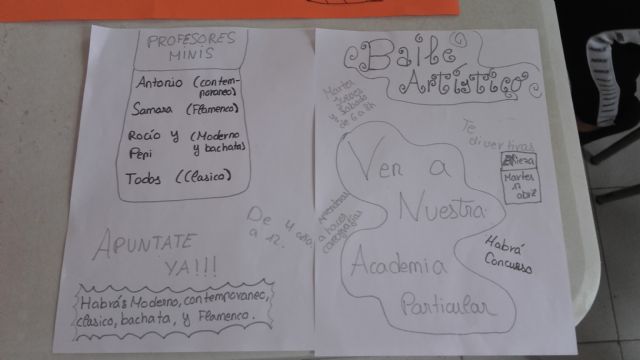 PROFESORES
MINIS
Antonio (contem-
poraneo)
Samara (Flamenco)
Rocío y (Moderno
Pepi y bachata)
Todos (Clasico)
De 4 años
a 12.
APUNTATE
YA!!!
Habrás Moderno, contemporaneo,
clasico, bachata, y Flamenco.
Baile
Artístico
Martes
Jueves
y Sábado
de 6 a 8h
Te
divertiras
Empieza
Martes
12
abril
Ven a
Nuestra
Academia
Particular
a hacer
coreografías
Habrá
Concurso